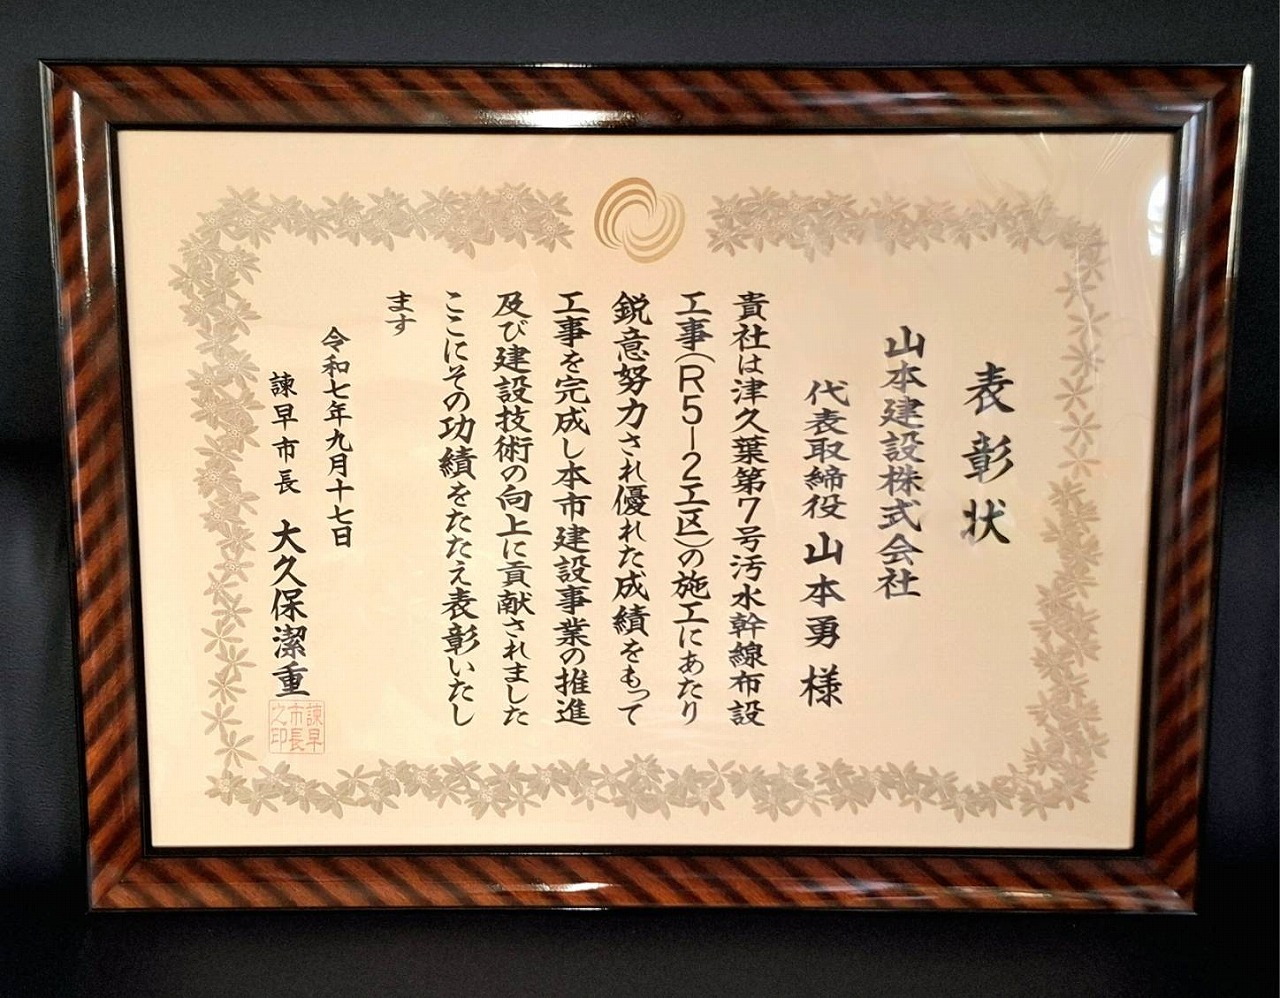 表彰状
山本建設株式会社
代表取締役 山本勇 様
貴社は津久葉第7号汚水幹線布設
工事(R5-2工区)の施工にあたり
鋭意努力され優れた成績をもって
工事を完成し本市建設事業の推進
及び建設技術の向上に貢献されました
ここにその功績をたたえ表彰いたし
ます
令和七年九月十七日
諫早市長 大久保潔重
諫早
市長
之印